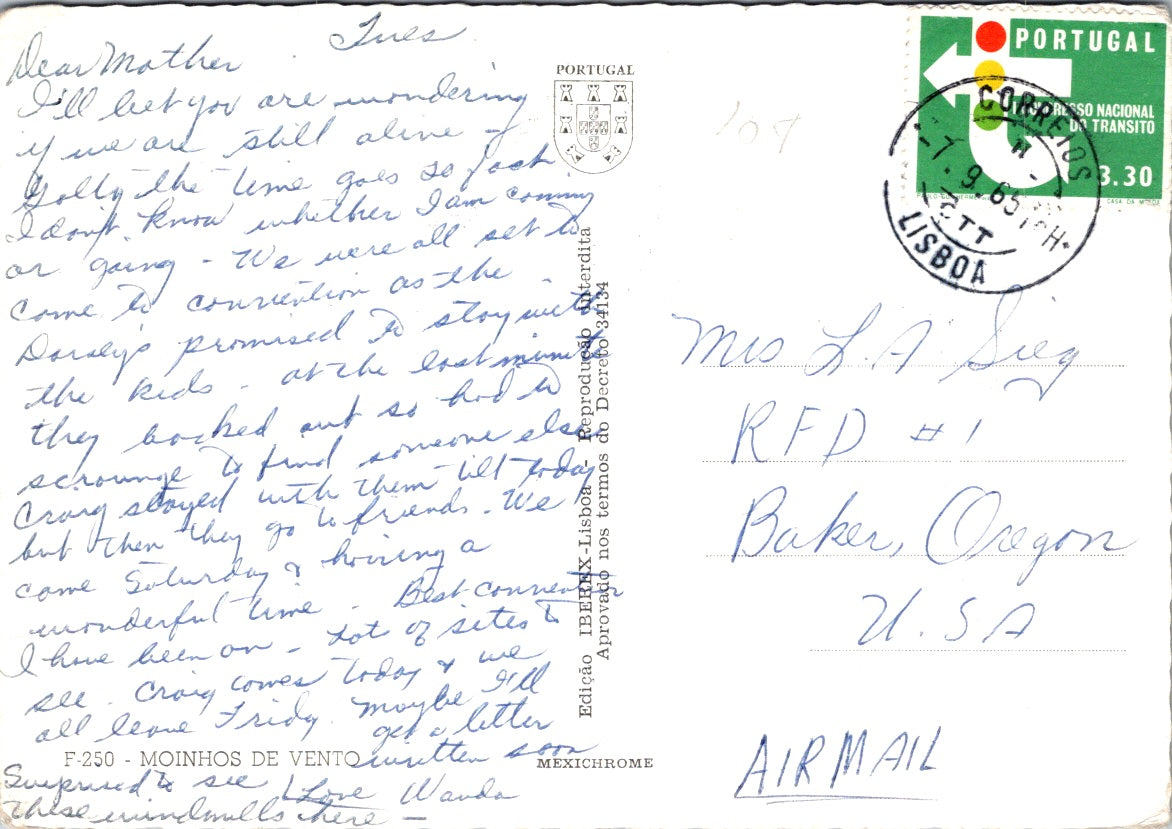 Tues
Dear Mother
I'll bet you are wondering
if we are still alive -
Golly the time goes so fast
I don't know whether I am coming
or going - We were all set to
come to convention as the
Dorsey's promised to stay with
the kids - at the last minute
they backed out so had to
scrounge to find someone else.
Craig stayed with them till today
but then they go to friends. We
came Saturday & having a
wonderful time. Best convention
I have been on - Lot of sites to
see. Craig comes today & we
all leave Friday. Maybe I'll
get a letter
written soon
Love Wanda
Surprised to see
these windmills here -
F-250 - MOINHOS DE VENTO
MEXICHROME
PORTUGAL
Edição IBEREX-Lisboa - Reprodução interdita
Aprovado nos termos do Decreto 34134
109
PORTUGAL
CONGRESSO NACIONAL
DO TRANSITO
3.30
CASA DA MOEDA
CORREIOS
-7.9.65
CTT
LISBOA
Mrs L.A. Sieg
RFD #1
Baker, Oregon
U.S.A
AIRMAIL